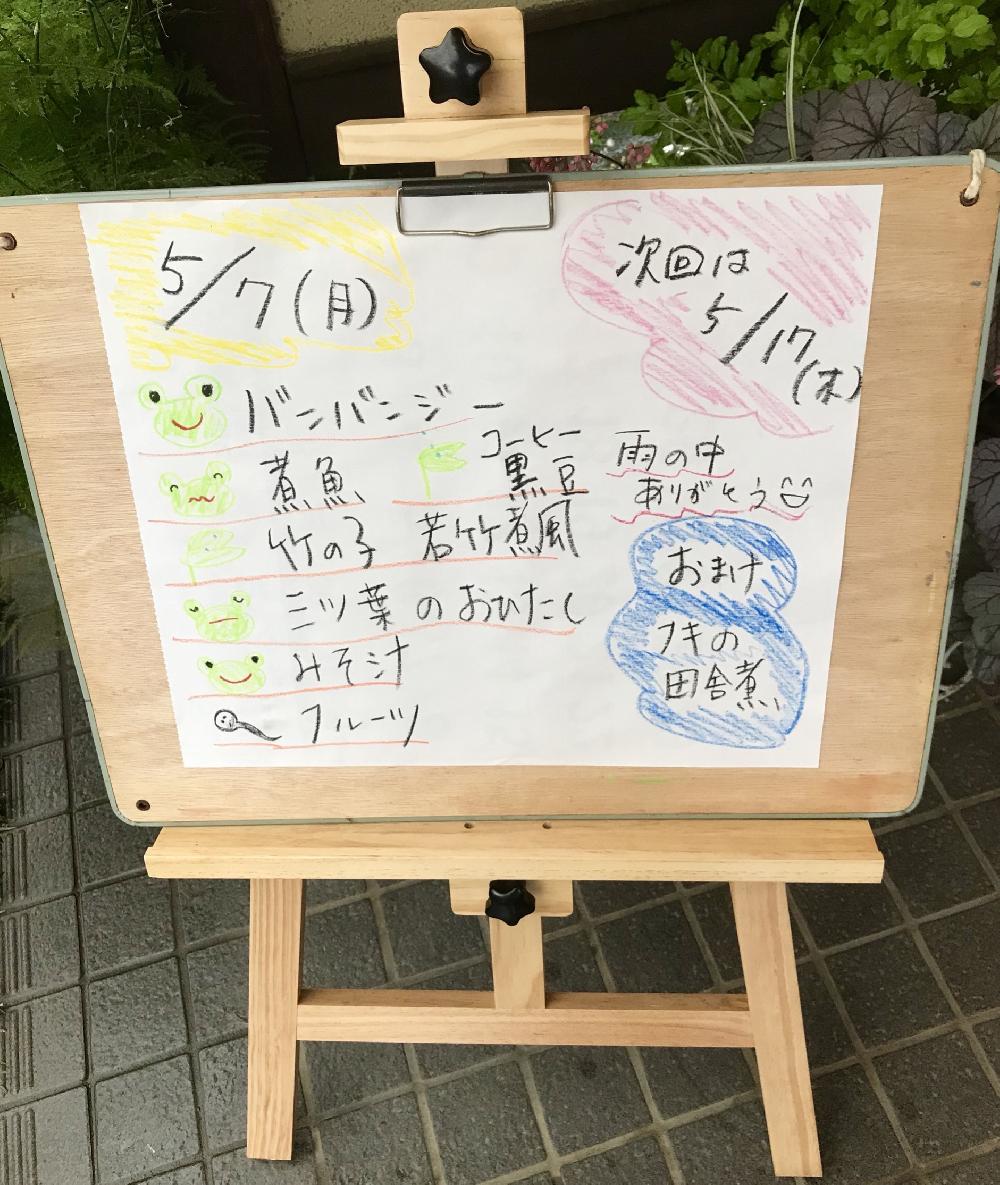 5/7(月)
次回は
5/17
(木)
バンバンジー
煮魚
コーヒー
黒豆
竹の子 若竹煮風
三ツ葉のおひたし
みそ汁
フルーツ
雨の中
ありがとう
おまけ
フキの
田舎煮